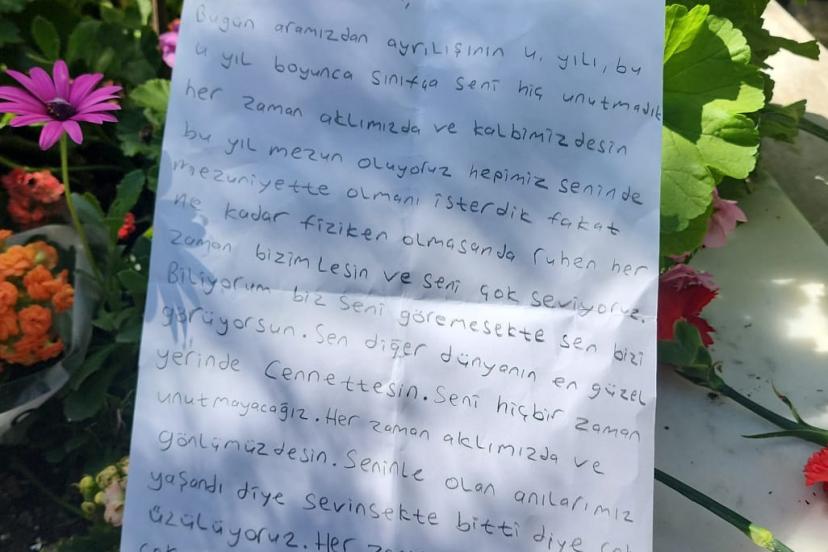 Bugün aramızdan ayrılışının 4. yılı, bu
4 yıl boyunca sınıfça seni hiç unutmadık
her zaman aklımızda ve kalbimizdesin
bu yıl mezun oluyoruz hepimiz seninde
mezuniyette olmanı isterdik fakat
ne kadar fiziken olmasanda ruhen her
zaman bizimlesin ve seni çok seviyoruz.
Biliyorum biz seni göremesekte sen bizi
görüyorsun. Sen diğer dünyanın en güzel
yerinde Cennettesin. Seni hiçbir zaman
unutmayacağız. Her zaman aklımızda ve
gönlümüzdesin. Seninle olan anılarımız
yaşandı diye sevinsekte bitti diye çok
üzülüyoruz. Her